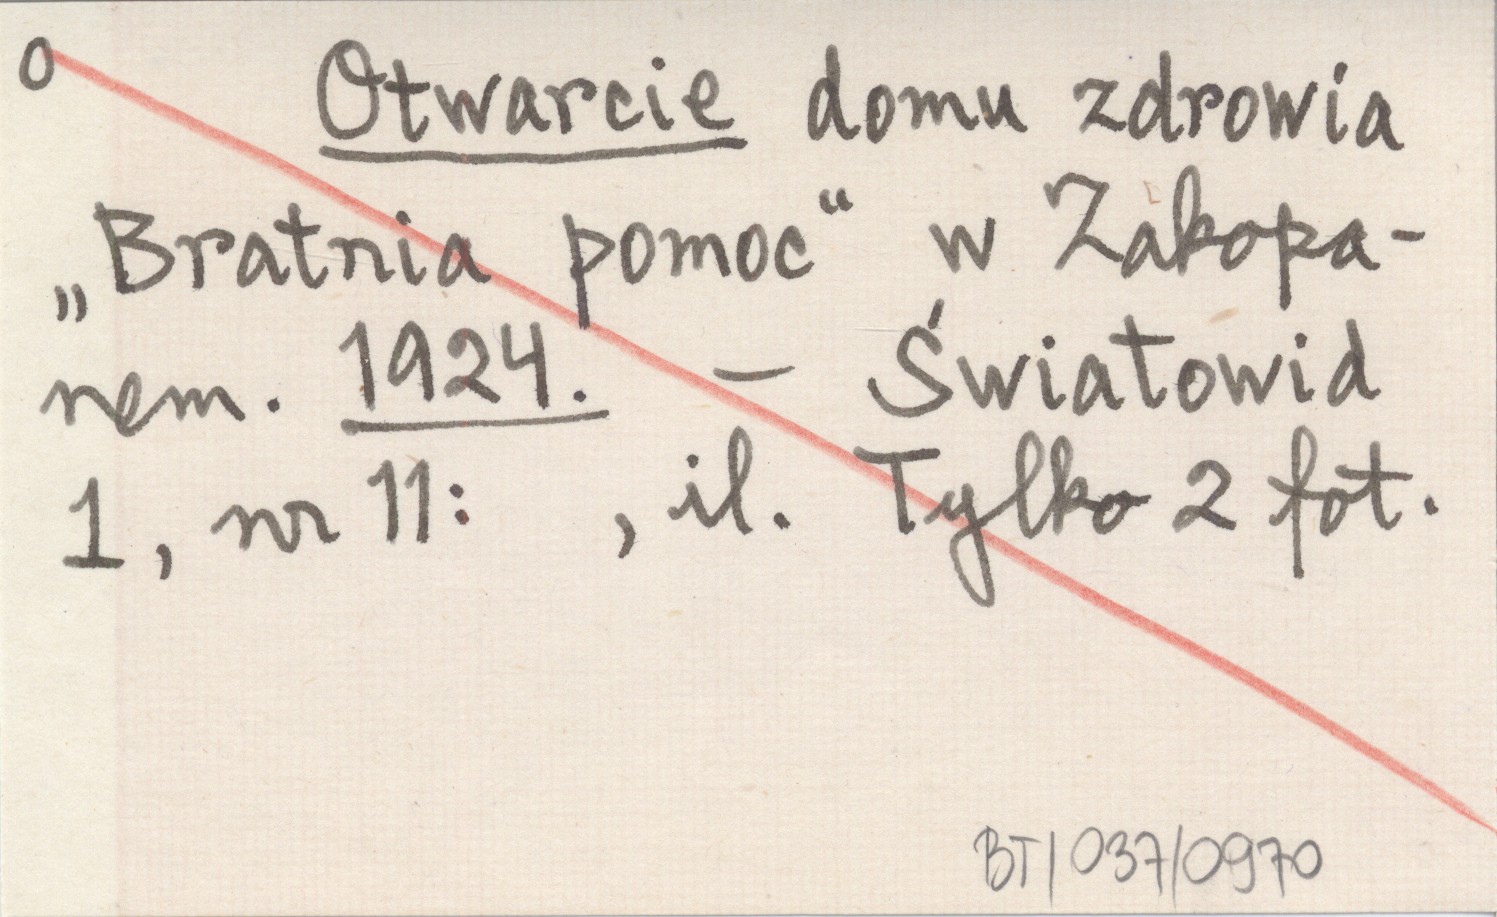 O Otwarcie domu zdrowia
„Bratnia pomoc“ w Zakopa-
nem. 1924. – Światowid
1, nr 11: , il. Tylko 2 fot.
BT/037/0970